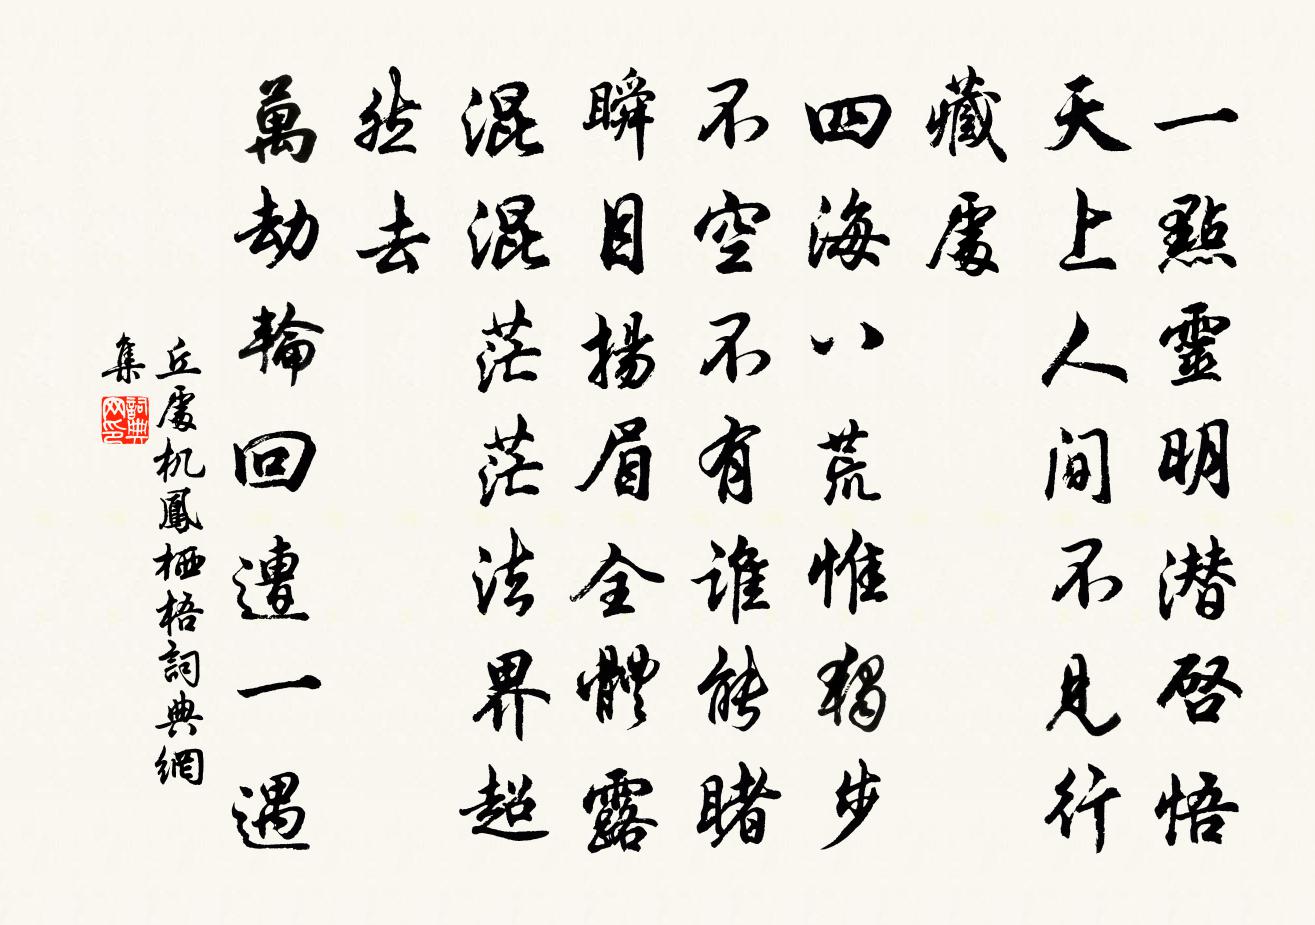 一點靈明潜啓悟
天上人間不見行
藏處
四海八荒惟獨步
不空不有誰能睹
瞬目揚眉全體露
混混茫茫法界超
然去
萬劫輪回遭一遇
丘處机鳳栖梧詞典網
集
詞典网印